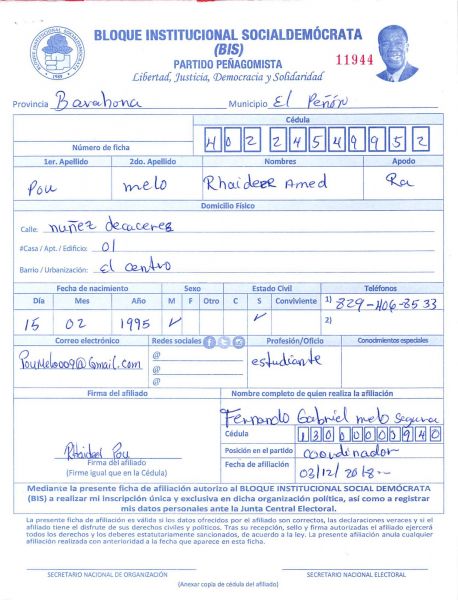 BLOQUE INSTITUCIONAL SOCIALDEMÓCRATA
(BIS)
PARTIDO PEÑAGOMISTA
11944
Libertad, Justicia, Democracia y Solidaridad
BLOQUE INSTITUCIONAL SOCIALDEMOCRATA
1989
Provincia Barahona Municipio El Peñón
Cédula
Número de ficha 402 2454995 2
1er. Apellido 2do. Apellido Nombres Apodo
Pou melo Rhaideer Amed Ra
Domicilio Físico
Calle: nuñez decaceres
#Casa / Apt. / Edificio: 01
Barrio / Urbanización: El centro
Fecha de nacimiento Sexo Estado Civil Teléfonos
Día Mes Año M F Otro C S Conviviente 1) 829-406-8533
15 02 1995 ✓ ✓ 2)
Correo electrónico Redes sociales Profesión/Oficio Conocimientos especiales
PouMelo009@Gmail.com @ estudiante
@
@
Firma del afiliado Nombre completo de quien realiza la afiliación
Fernando Gabriel melo segura
Cédula 13000000940
Rhaideer Pou Posición en el partido coordinador
Firma del afiliado Fecha de afiliación 03/12/2018-
(Firme igual que en la Cédula)
Mediante la presente ficha de afiliación autorizo al BLOQUE INSTITUCIONAL SOCIAL DEMÓCRATA
(BIS) a realizar mi inscripción única y exclusiva en dicha organización política, así como a registrar
mis datos personales ante la Junta Central Electoral.
La presente ficha de afiliación es válida si los datos ofrecidos por el afiliado son correctos, las declaraciones veraces y si el
afiliado tiene el disfrute de sus derechos civiles y políticos. Tras su recepción, sello y firma autorizadas el afiliado ejercerá
todos los derechos y los deberes estatutariamente sancionados, de acuerdo a la ley. La presente afiliación anula cualquier
afiliación realizada con anterioridad a la fecha que aparece en esta ficha.
SECRETARIO NACIONAL DE ORGANIZACIÓN SECRETARIO NACIONAL ELECTORAL
(Anexar copia de cédula del afiliado)